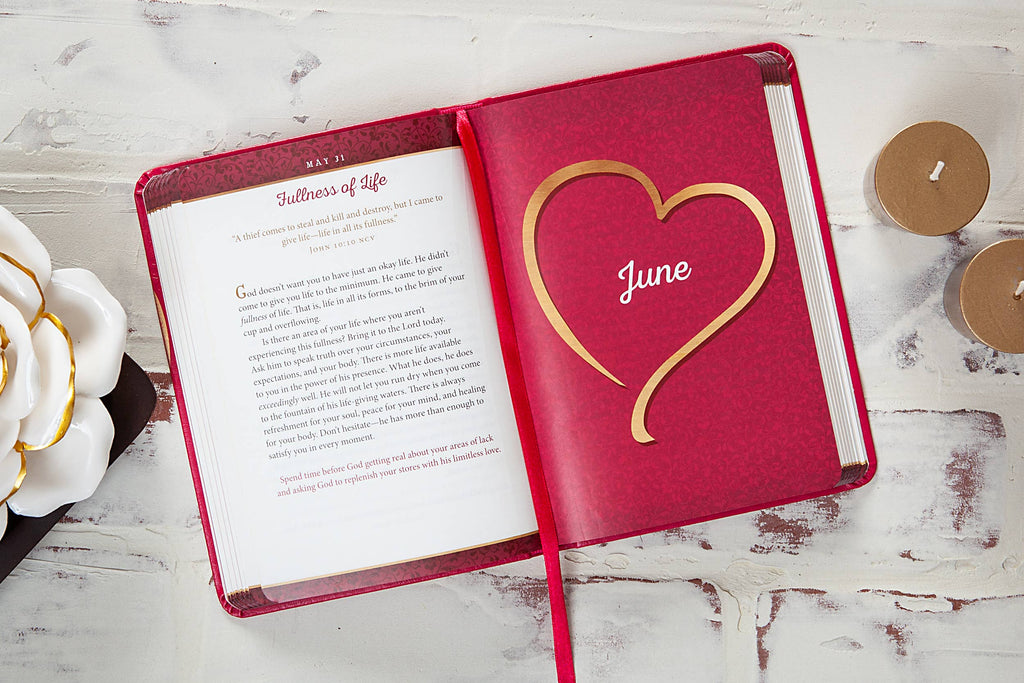 MAY 31
Fullness of Life
“A thief comes to steal and kill and destroy, but I came to
give life—life in all its fullness.”
JOHN 10:10 NCV
God doesn’t want you to have just an okay life. He didn’t
come to give you life to the minimum. He came to give
fullness of life. That is, life in all its forms, to the brim of your
cup and overflowing.
Is there an area of your life where you aren’t
experiencing this fullness? Bring it to the Lord today.
Ask him to speak truth over your circumstances, your
expectations, and your body. There is more life available
to you in the power of his presence. What he does, he does
exceedingly well. He will not let you run dry when you come
to the fountain of his life-giving waters. There is always
refreshment for your soul, peace for your mind, and healing
for your body. Don’t hesitate—he has more than enough to
satisfy you in every moment.
Spend time before God getting real about your areas of lack
and asking God to replenish your stores with his limitless love.
June